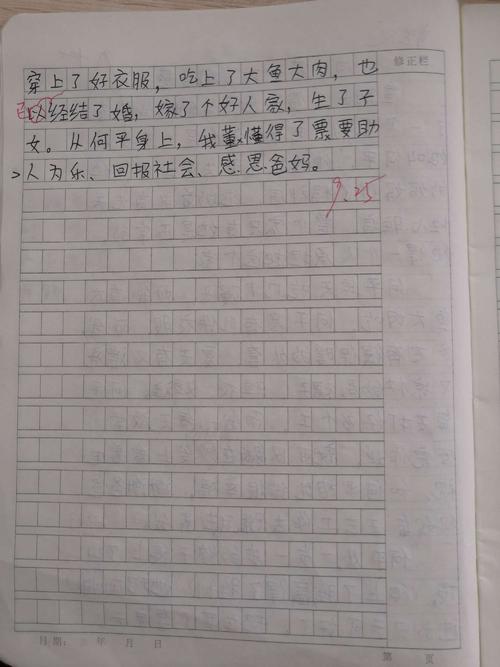 修正栏
穿上了好衣服，吃上了大鱼大肉，也
已以经结了婚，嫁了个好人家，生了子
女。从何平身上，我董懂得了票要助
人为乐、回报社会、感恩爸妈。
9.25
日期： 年 月 日
第 页